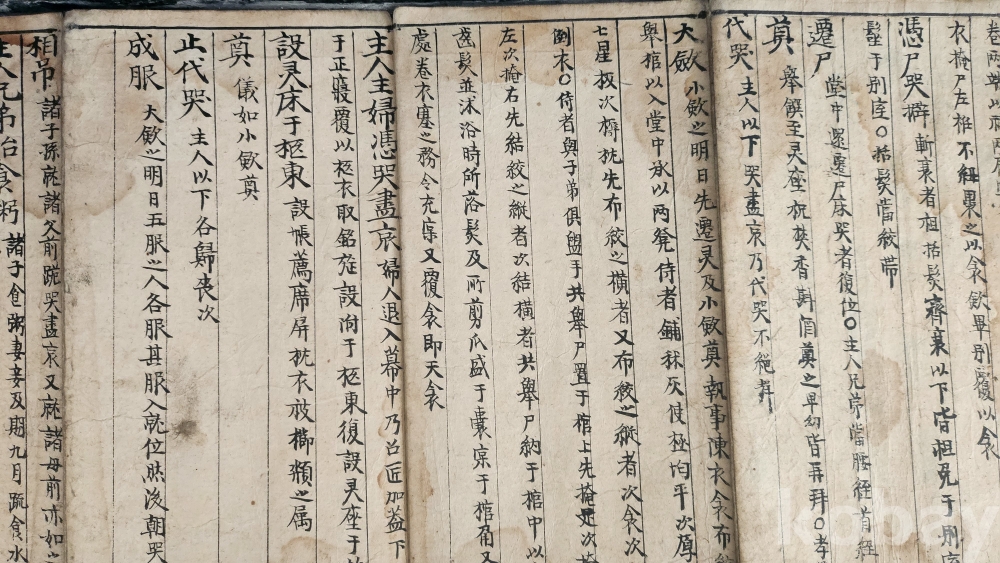 卷兩端以補兩肩
衣掩尸左袵不紐裹之以衾斂畢別覆以衾
憑尸哭擗 斬衰者袒括髮齊衰以下皆袒免于別室
髽于別室○括髮當絞帶
遷尸 堂中還遷尸床哭者復位○主人兄弟當腰絰首絰
奠 奉饌至灵座祝焚香斟酒奠之卑幼皆再拜○孝
代哭 主人以下哭盡哀乃代哭不絕聲
大斂 小斂之明日先遷灵及小斂奠執事陳衣衾布絞
舉棺以入堂中承以兩凳侍者鋪秫灰使極均平次厚
七星板次褥枕先布絞之橫者又布絞之縱者次衾次
倒衣○侍者與子弟俱盥手共舉尸置于棺上先掩足次掩
左次掩右先結絞之縱者次結橫者共舉尸納于棺中以
齒髮並沐浴時所落髮及所剪爪盛于囊寘于棺角又
處卷衣塞之務令充實又覆衾即天衾
主人主婦憑哭盡哀婦人退入幕中乃召匠加蓋下
于正寢覆以柩衣取銘旌設沟于柩東復設灵座于
設灵床于柩東 設帳薦席屏枕衣被櫛頮之属
奠 儀如小斂奠
止代哭 主人以下各歸喪次
成服 大斂之明日五服之人各服其服入就位然後朝哭
相吊 諸子孫就諸父前跪哭盡哀又就諸母前亦如之
主人兄弟始食粥 諸子食粥妻妾及期九月疏食水
kobay